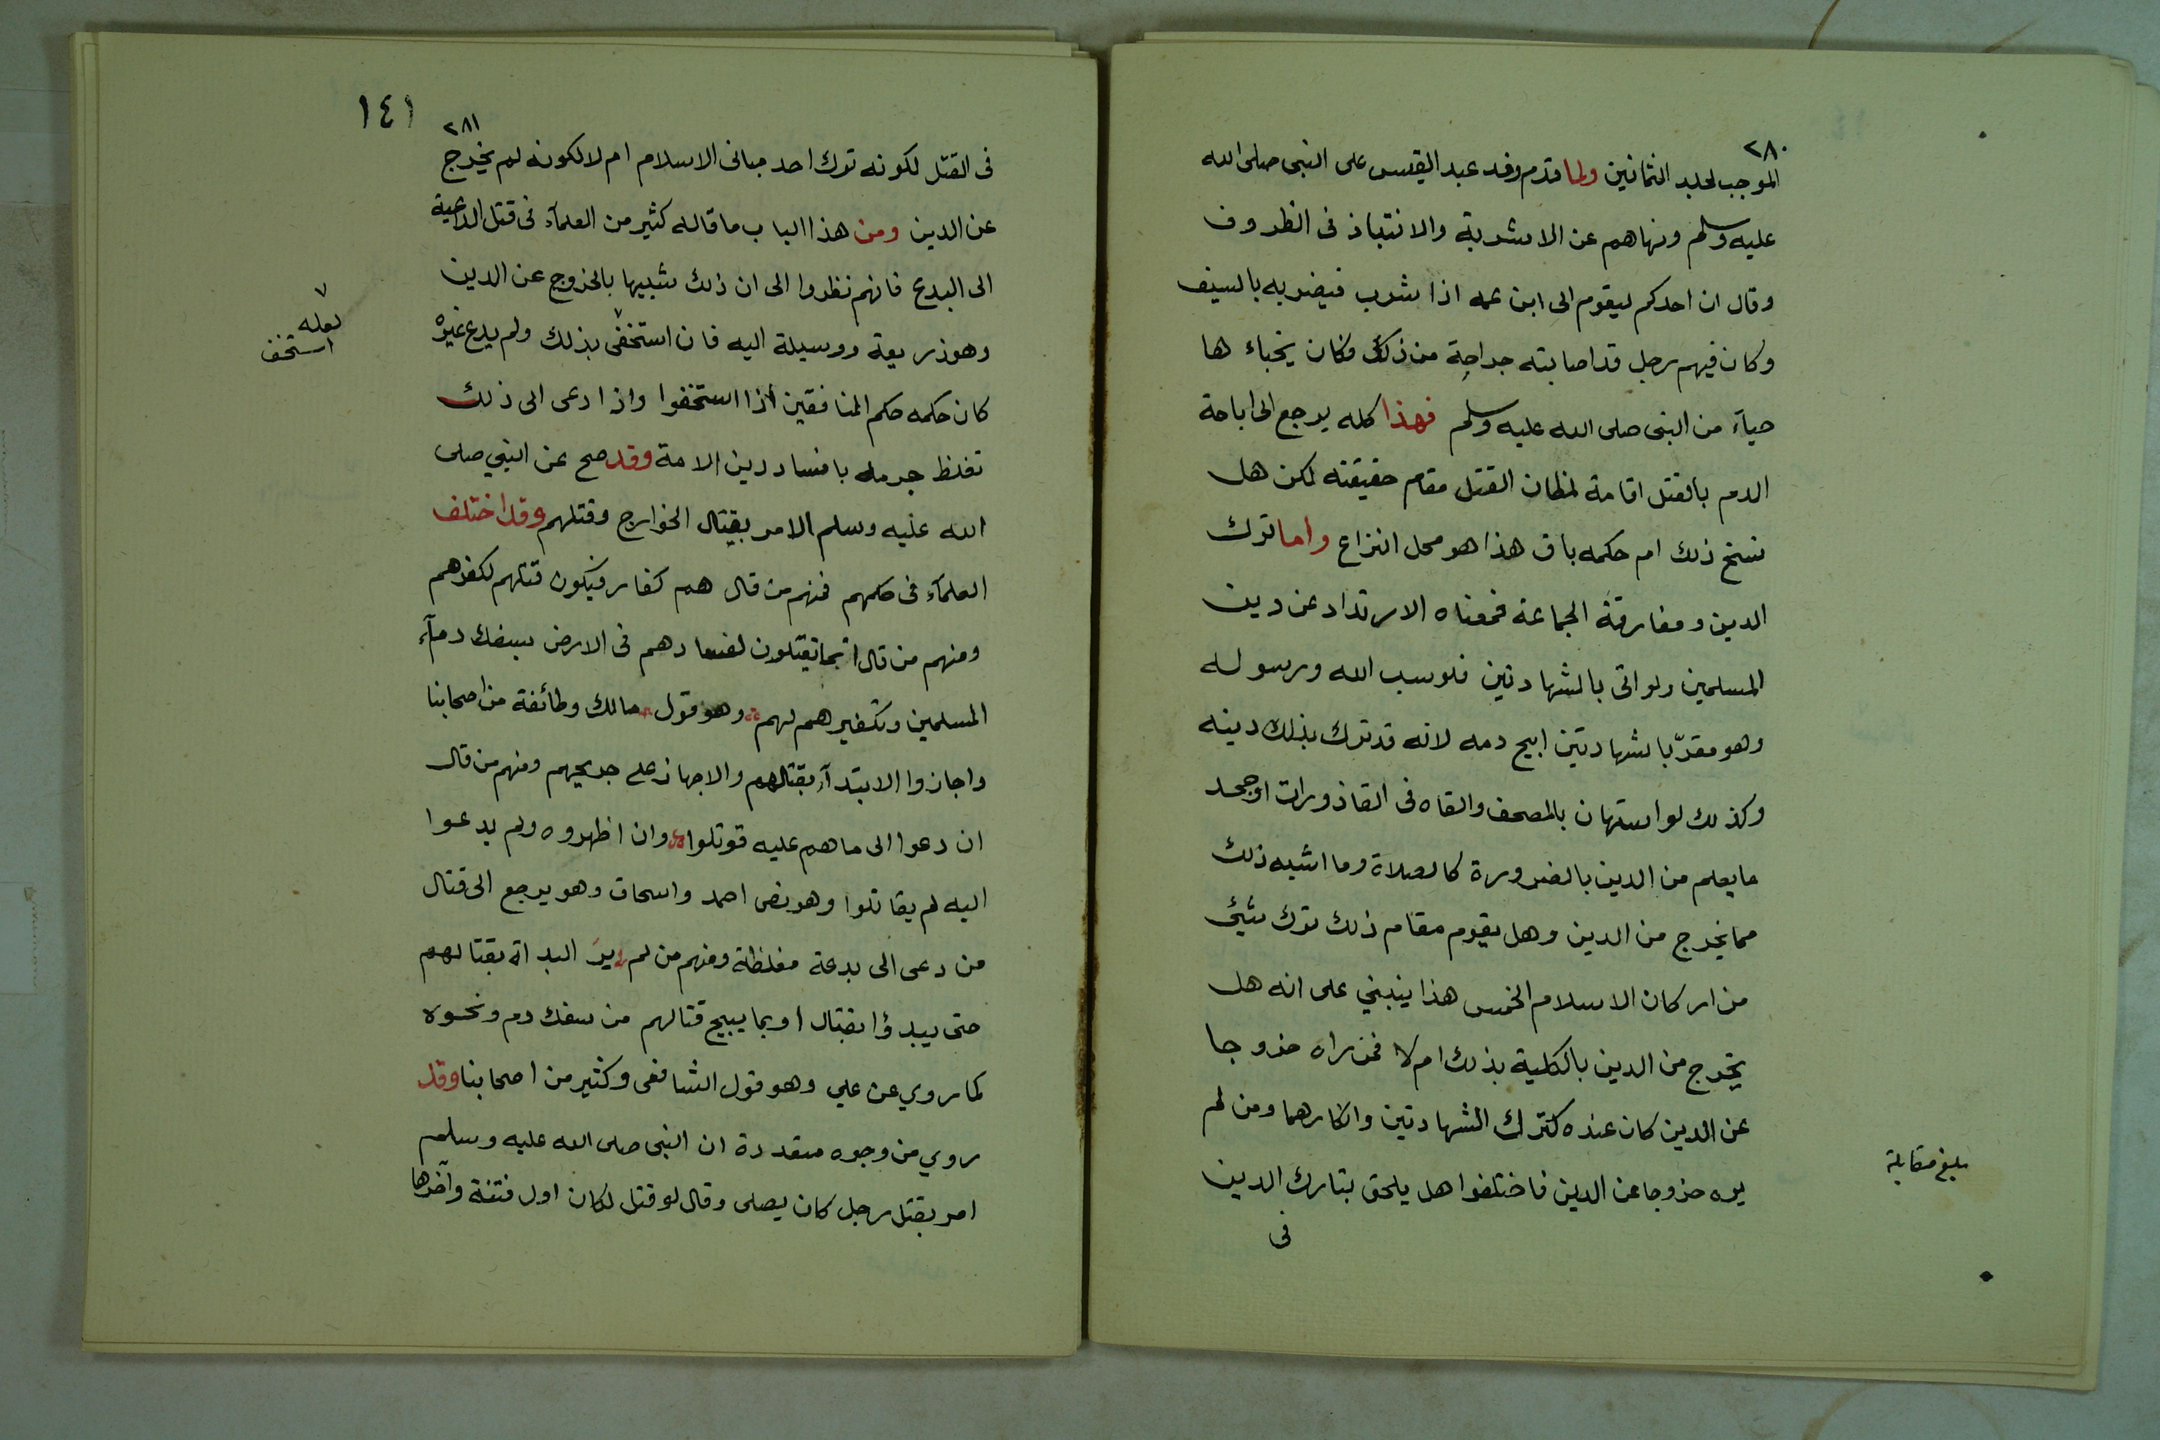 ٢٨٠
الموجب لجلد الثمانين ولما قدم وفد عبد القيس على النبي صلى الله
عليه وسلم ونهاهم عن الاشربة والانتباذ فى الظروف
وقال ان احدكم ليقوم الى ابن عمه اذا شرب فيضربه بالسيف
وكان فيهم رجل قد اصابته جراحة من ذلك وكان يخباء ها
حيآء من النبى صلى الله عليه وسلم فهذا كله يرجع الى اباحة
الدم بالقتل اقامة لمظان القتل مقام حقيقته لكن هل
نسخ ذلك ام حكمه باق هذا هو محل النزاع واما ترك
الدين ومفارقة الجماعة فمعناه الارتداد عن دين
المسلمين ولو اتى بالشهادتين فلو سب الله ورسوله
وهو مقرّ بالشهادتين ابيح دمه لانه قد ترك بذلك دينه
وكذلك لو استهان بالمصحف والقاه فى القاذورات او جحد
ما يعلم من الدين بالضرورة كالصلاة وما اشبه ذلك
مما يخرج من الدين وهل يقوم مقام ذلك ترك شيئ
من اركان الاسلام الخمس هذا ينبني على انه هل
يخرج من الدين بالكلية بذلك ام لا فمن راه خروجا
عن الدين كان عنده كترك الشهادتين وانكارهما ومن لم
يره خروجا عن الدين فاختلفوا هل يلحق بتارك الدين
فى
بلغ مقابلة
١٤١
٢٨١
فى القتل لكونه ترك احد مبانى الاسلام ام لا لكونه لم يخرج
عن الدين ومن هذا الباب ما قاله كثير من العلمآء فى قتل الداعية
الى البدع فانهم نظروا الى ان ذلك شبيها بالخروج عن الدين
وهو ذريعة ووسيلة اليه فان استخفى بذلك ولم يدع غيره
كان حكمه حكم المنافقين اذا استخفوا واذا دعى الى ذلك
تغلظ جرمه بافساد دين الامة وقد صح عن النبي صلى
الله عليه وسلم الامر بقتال الخوارج وقتلهم وقد اختلف
العلمآء فى حكمهم فمنهم من قال هم كفار فيكون قتلهم لكفرهم
ومنهم من قال انما يقتلون لفسادهم فى الارض بسفك دمآء
المسلمين وتكفيرهم لهم وهو قول مالك وطائفة من اصحابنا
واجازوا الابتدآء بقتالهم والاجهاز على جريحهم ومنهم من قال
ان دعوا الى ما هم عليه قوتلوا وان اظهروه ولم يدعوا
اليه لم يقاتلوا وهو نص احمد واسحاق وهو يرجع الى قتال
من دعى الى بدعة مغلظة ومنهم من لم ير البداة بقتالهم
حتى يبدؤا بقتال او بما يبيح قتالهم من سفك دم ونحوه
كما روي عن علي وهو قول الشافعى وكثير من اصحابنا وقد
روي من وجوه متعددة ان النبى صلى الله عليه وسلم
امر بقتل رجل كان يصلى وقال لو قتل لكان اول فتنة وآخرها
٧
لعله
استخف